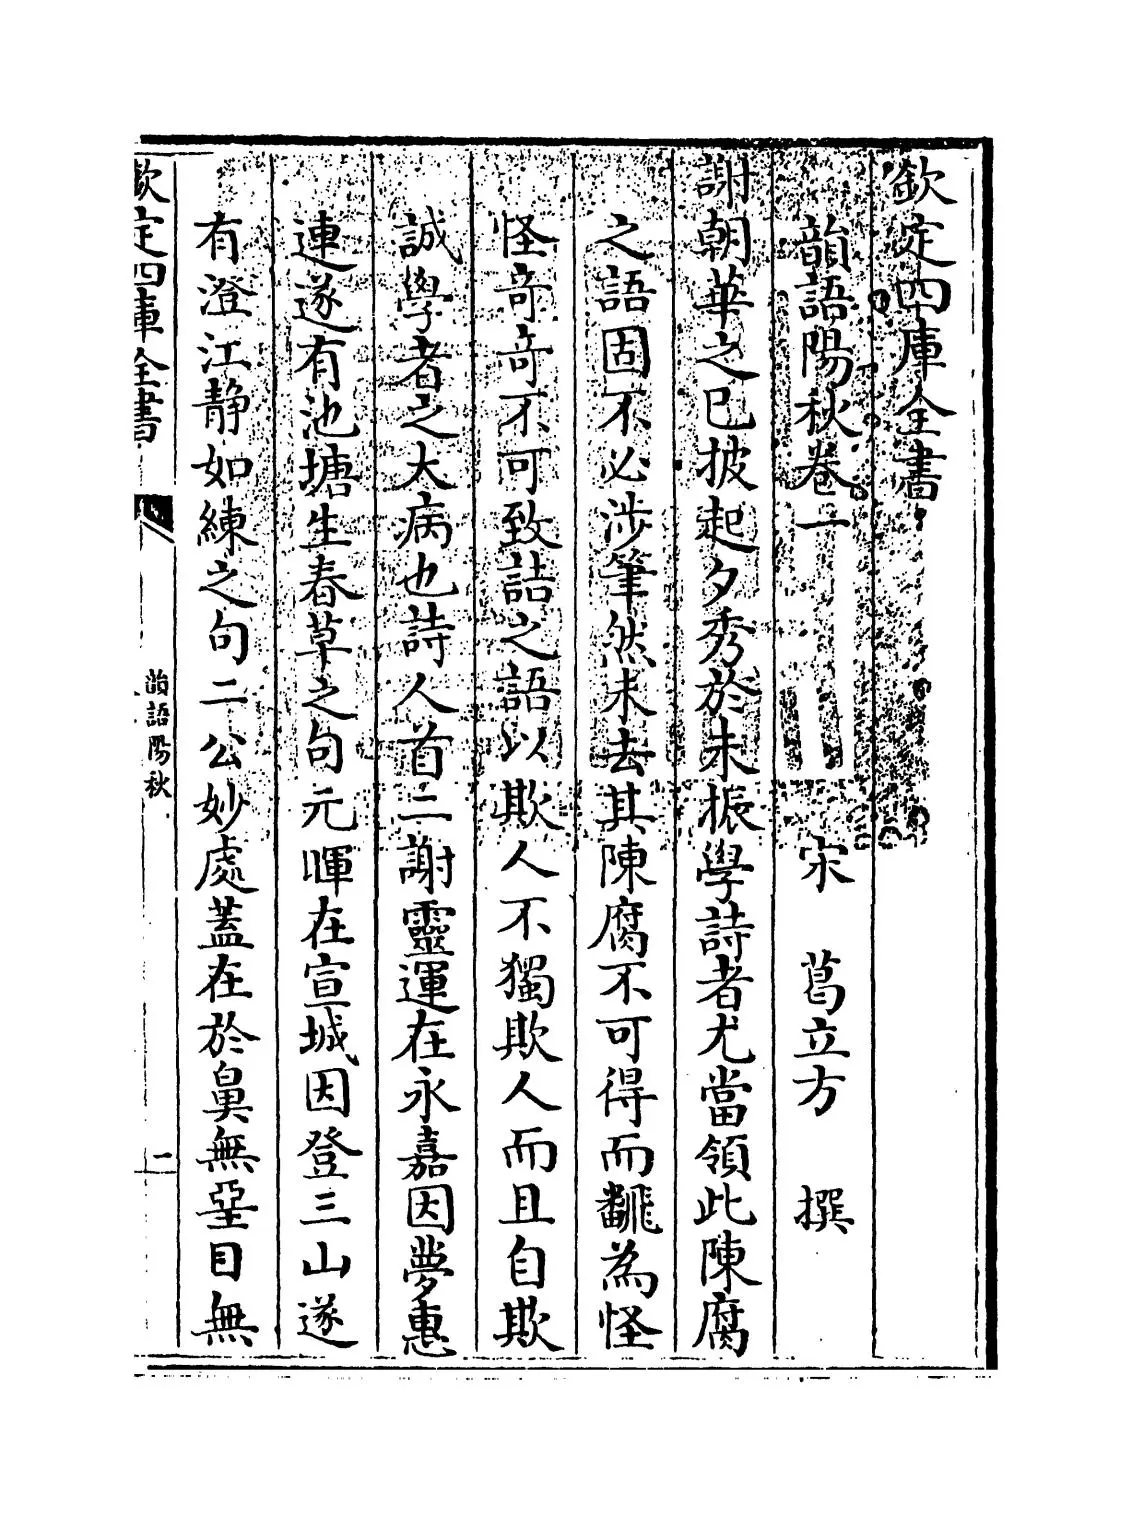 欽定四庫全書
韻語陽秋卷一
宋 葛立方 撰
謝朝華之已披起夕秀於未振學詩者尤當領此陳腐
之語固不必涉筆然未去其陳腐不可得而翻為怪
怪奇奇不可致詰之語以欺人不獨欺人而且自欺
誠學者之大病也詩人首二謝靈運在永嘉因夢惠
連遂有池塘生春草之句元暉在宣城因登三山遂
有澄江静如練之句二公妙處蓋在於鼻無堊目無
欽定四庫全書
韻語陽秋
一